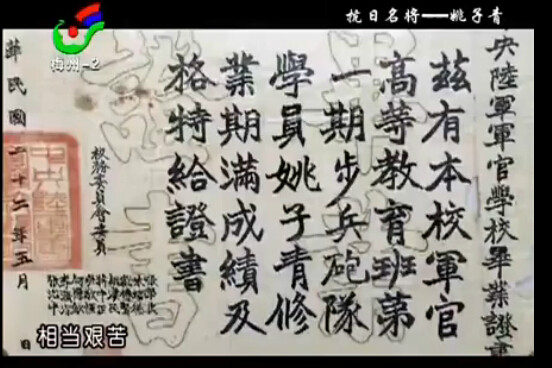 抗日名将——姚子青
梅州-2
央陸軍軍官學校畢業證書
茲有本校軍官
高等教育班第
一期步兵砲隊
學員姚子青修
業期滿成績及
格特給證書
校務委員會委員
華民國二十二年五月
日
相当艰苦